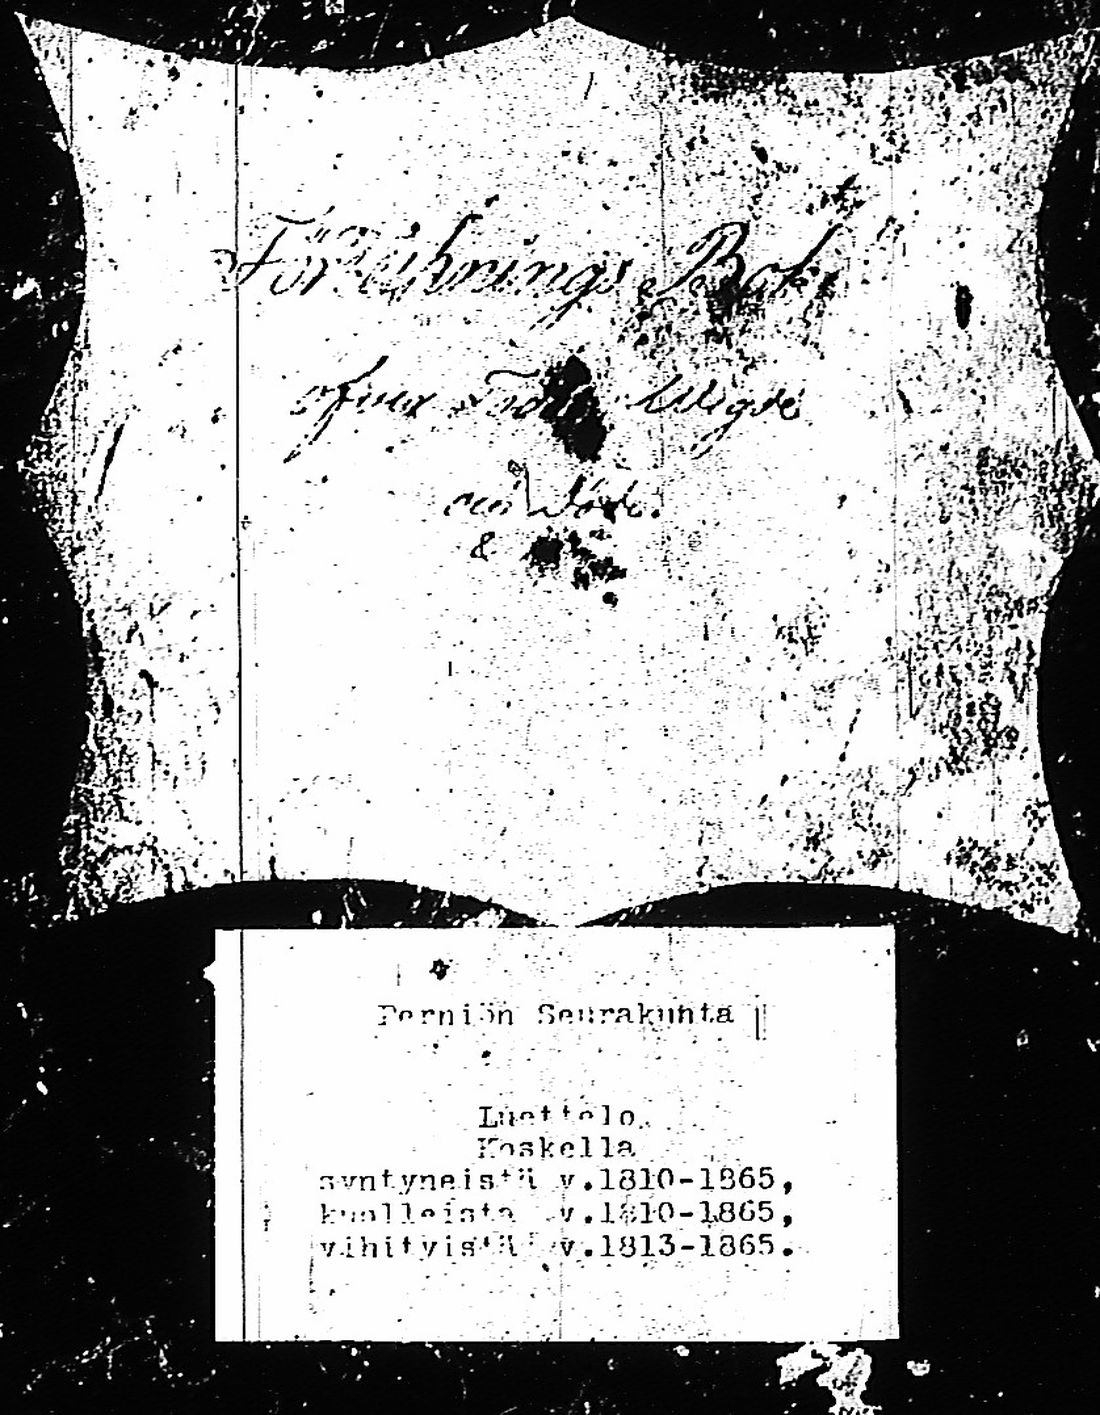 Förtekning Bok
öfver Födde Wigde
och Döde.
&
Perniön Seurakunta
Luettelo
Koskella
syntyneistä v.1810-1865,
kuolleista v.1810-1865,
vihityistä v.1813-1865.